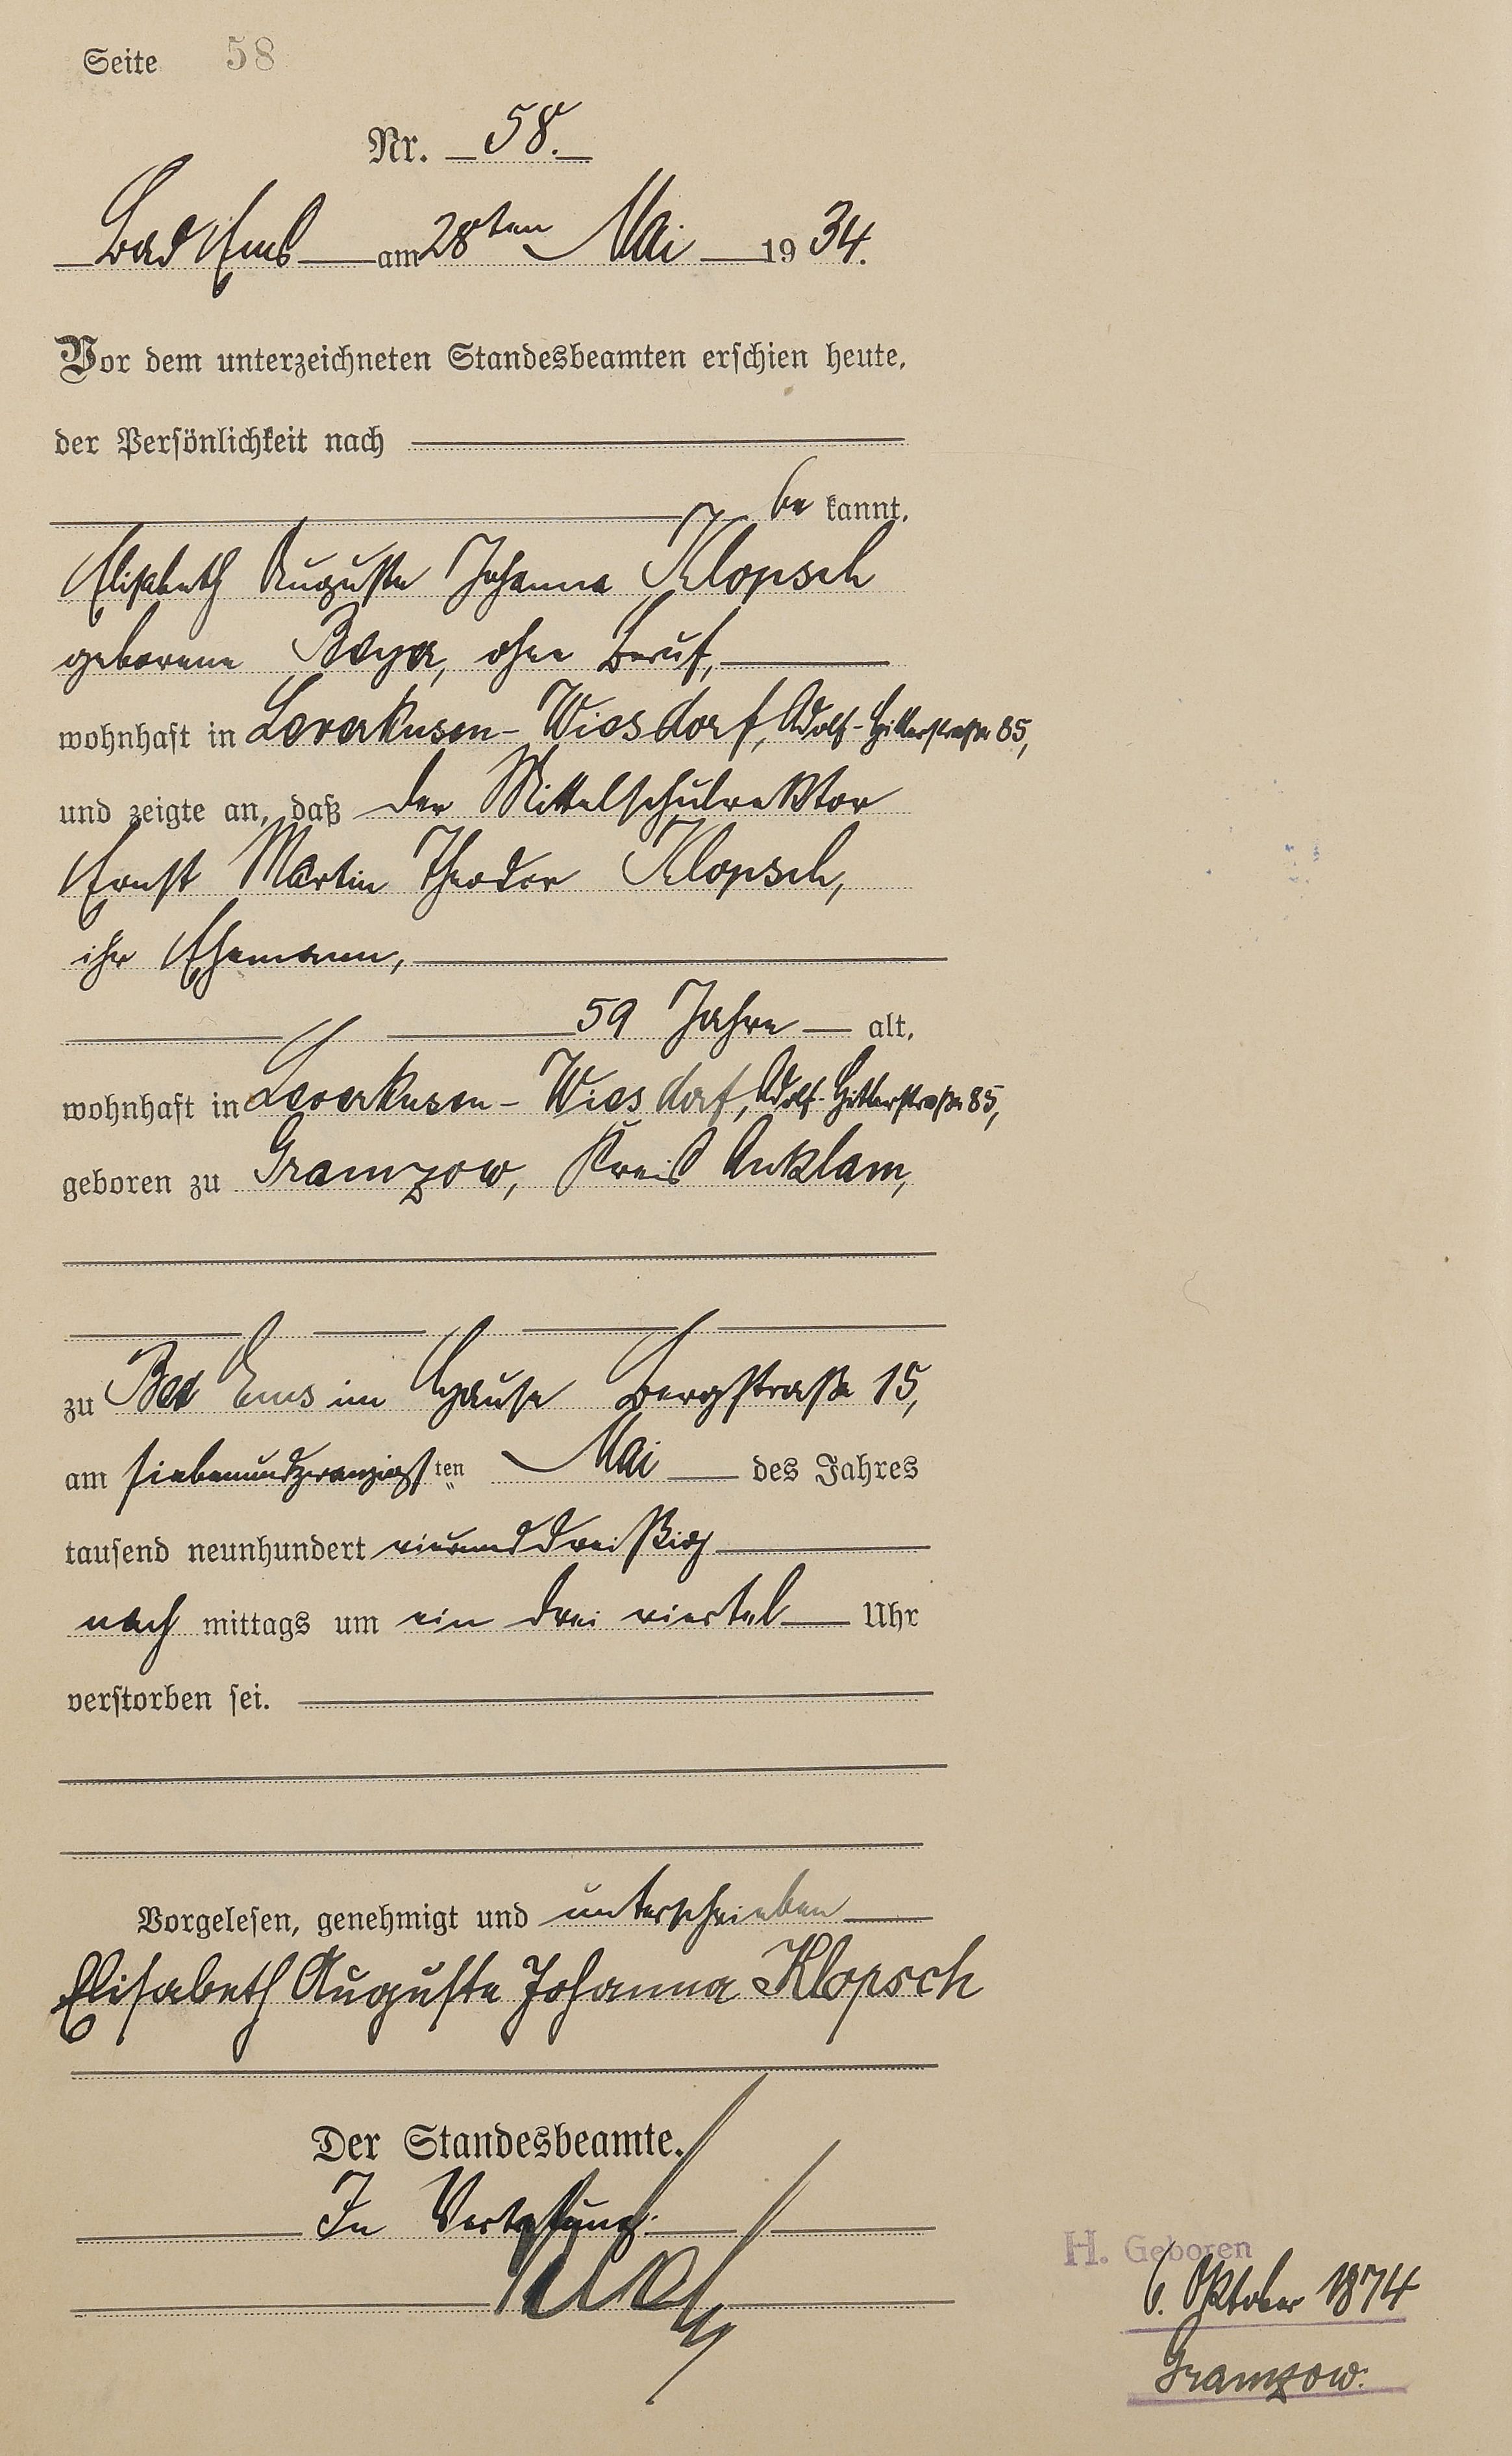 Seite 58
Nr. 58.
Bad Ems am 28ten Mai 1934.
Vor dem unterzeichneten Standesbeamten erschien heute,
der Persönlichkeit nach
be kannt,
Elisabeth Auguste Johanna Klopsch
geborene Beyer, ohne Beruf,
wohnhaft in Leverkusen-Wiesdorf, Adolf-Hitlerstraße 85,
und zeigte an, daß der Mittelschulrektor
Ernst Martin Theodor Klopsch,
ihr Ehemann,
59 Jahre alt,
wohnhaft in Leverkusen-Wiesdorf, Adolf-Hitlerstraße 85,
geboren zu Gramzow, Kreis Anklam,
zu Bad Ems im Hause Bergstraße 15,
am siebenundzwanzigsten Mai des Jahres
tausend neunhundert vierunddreißig
nach mittags um ein drei viertel Uhr
verstorben sei.
Vorgelesen, genehmigt und unterschrieben
Elisabeth Auguste Johanna Klopsch
Der Standesbeamte.
In Vertretung:
H. Geboren
6. Oktober 1874
Gramzow.